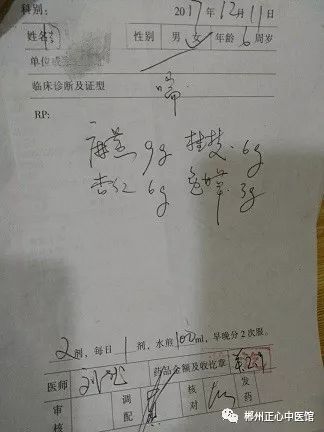 科别: 2017年12月11日
姓名 性别 男 女 年龄 6周岁
单位或
临床诊断及证型 喘
RP:
麻黄 9g 桂枝 6g
杏仁 6g 甘草 3g
2剂，每日1剂，水煎100ml，早晚分2次服。
医师 药品金额及收讫章
审核 调配 核对 发药
郴州正心中医馆